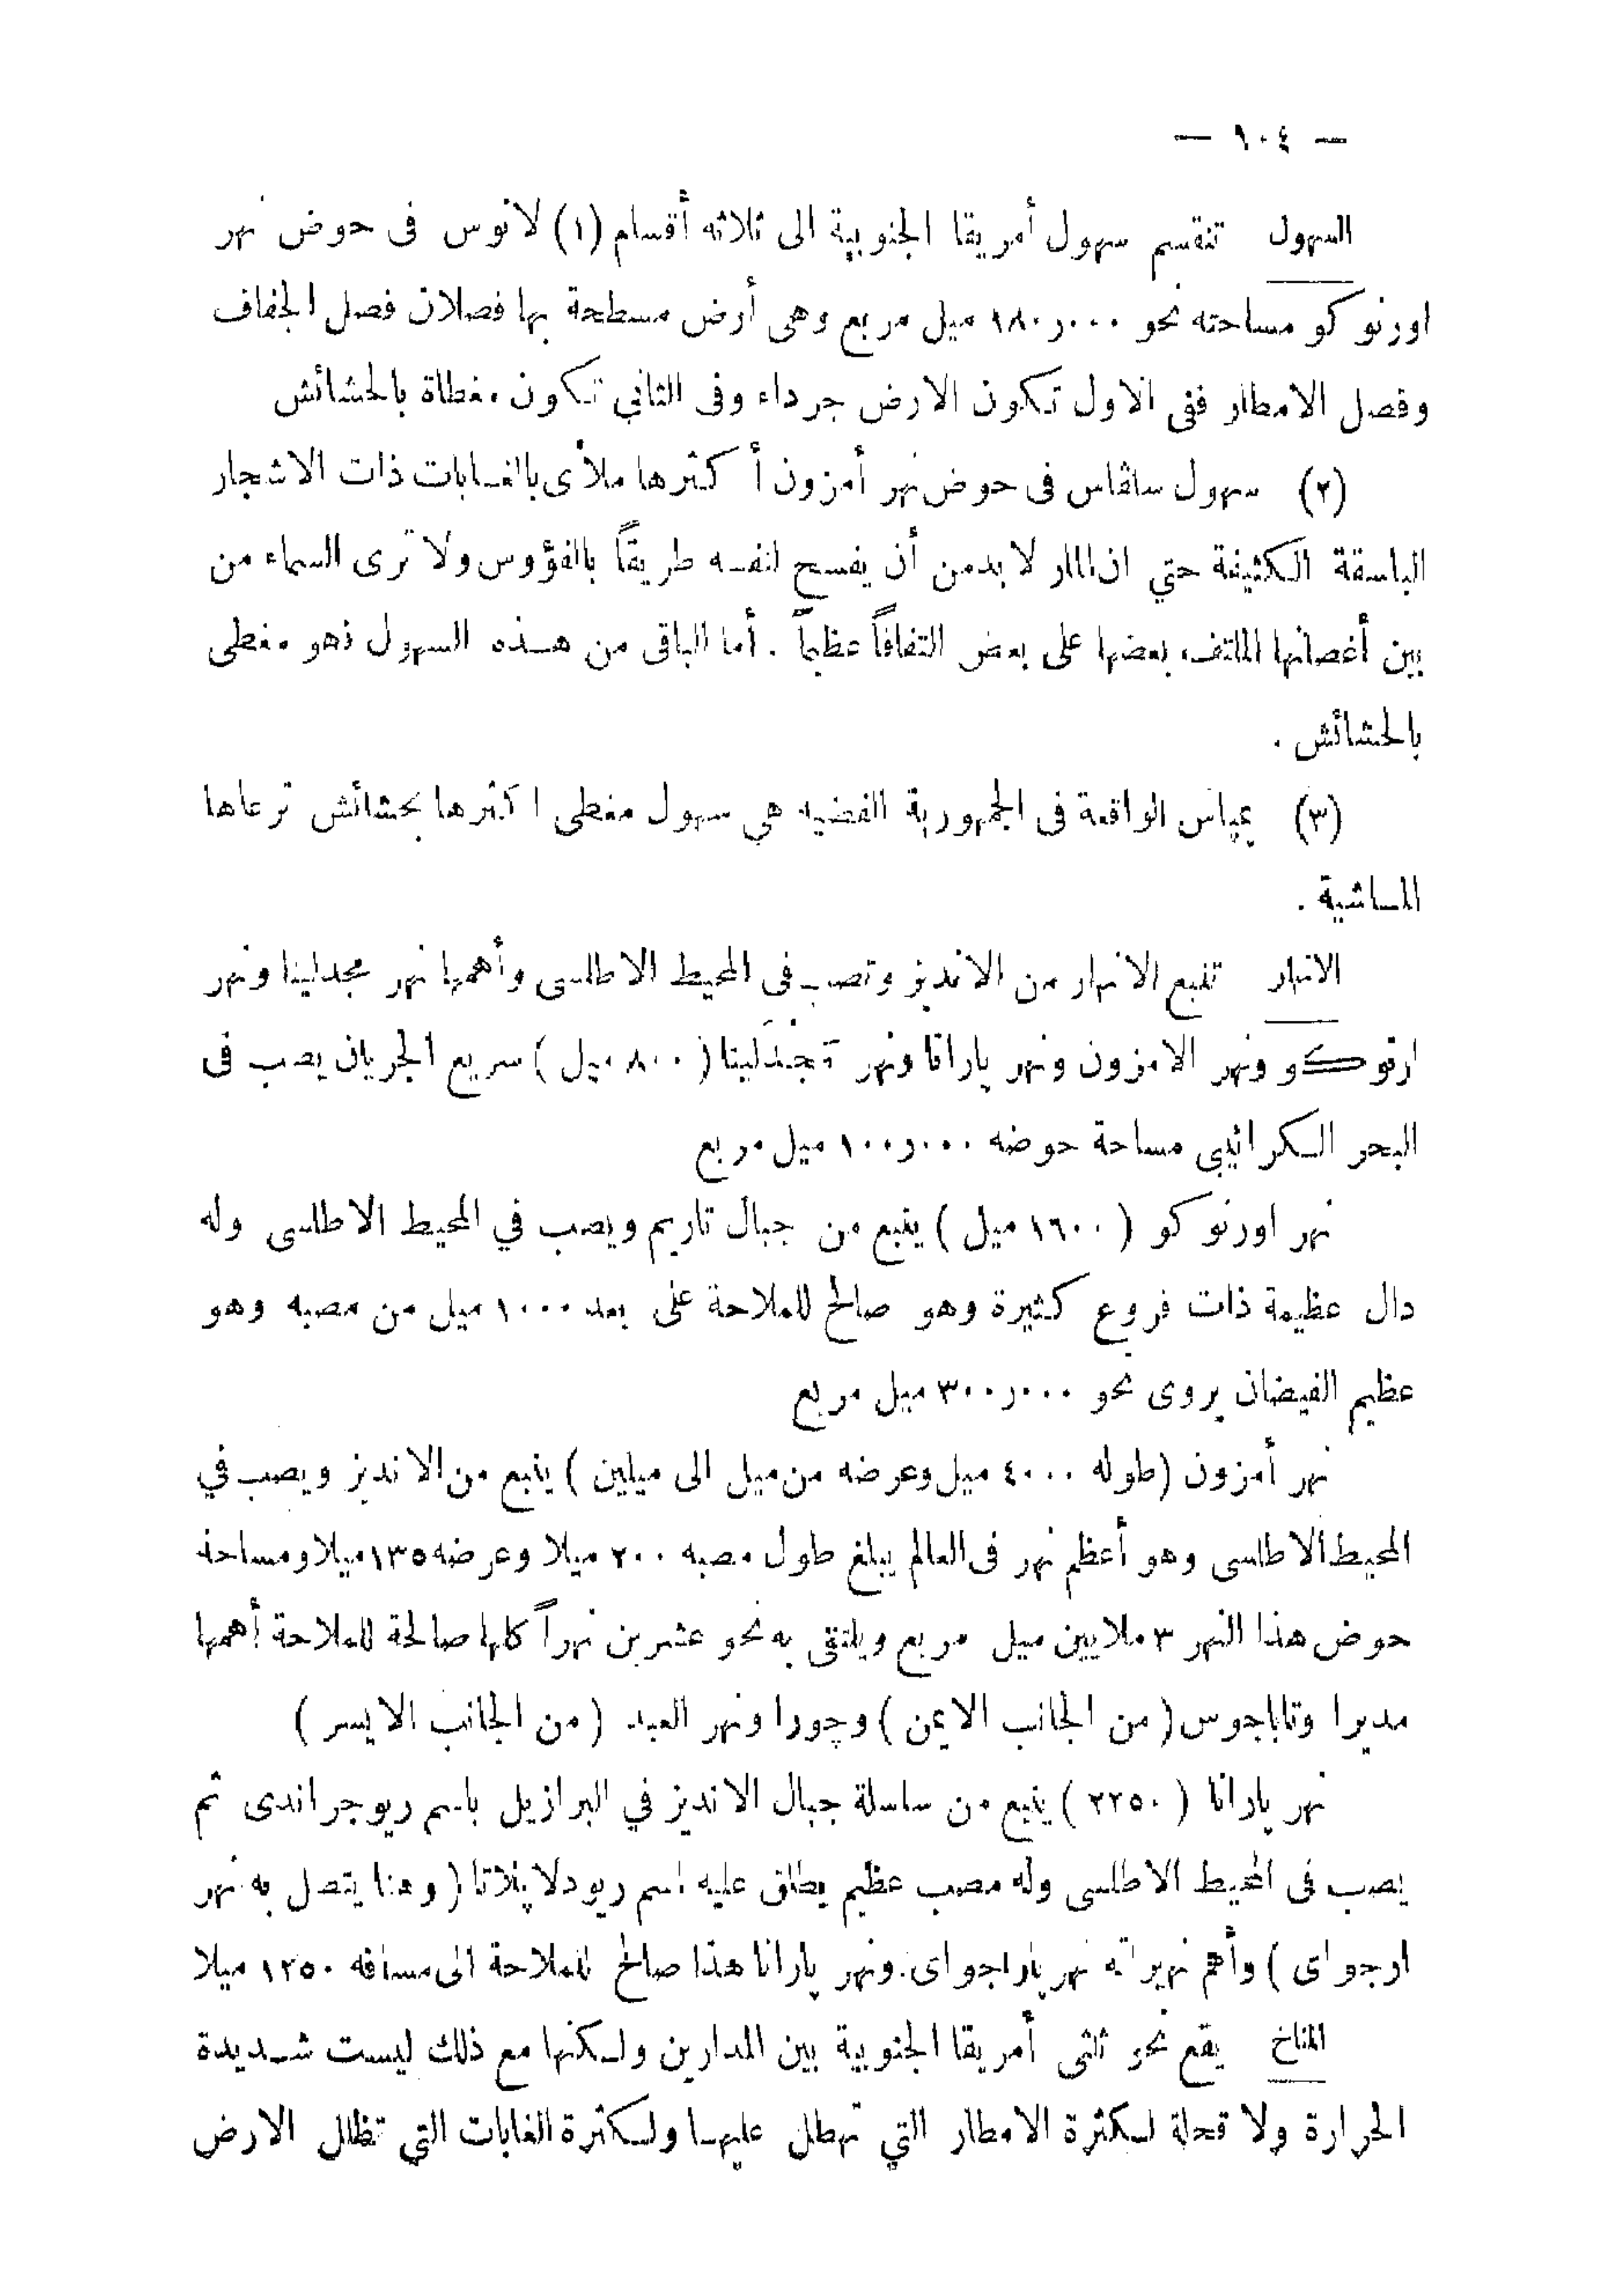 — ٩٠٤ —
السهول تنقسم سهول أمريقا الجنوبية الى ثلاثه أقسام (١) لانوس فى حوض نهر
اورنوكو مساحته نحو ١٨٠٫٠٠٠ ميل مربع وهى أرض مسطحة بها فصلان فصل الجفاف
وفصل الامطار ففى الاول تكون الارض جرداء وفى الثاني تكون مغطاة بالحشائش
(٢) سهول سلڤاس فى حوض نهر أمزون أكثرها ملأى بالغابات ذات الاشجار
الباسقة الكثيفة حتي ان المار لا بد من أن يفسح لنفسه طريقاً بالفؤوس ولا ترى السماء من
بين أغصانها الملتف بعضها على بعض التفافاً عظيماً . أما الباقى من هذه السهول فهو مغطى
بالحشائش .
(٣) پمپاس الواقعة فى الجمهورية الفضيه هي سهول مغطى اكثرها بحشائش ترعاها
الماشية .
الانهار تنبع الانهار من الانديز وتصب فى المحيط الاطلسى وأهمها نهر مجدلينا ونهر
ارنوكو ونهر الامزون ونهر پارانا ونهر مجدلينا ( ٨٠٠ ميل ) سريع الجريان يصب فى
البحر الكرائيبى مساحة حوضه ١٠٠٫٠٠٠ ميل مربع
نهر اورنوكو ( ١٦٠٠ ميل ) ينبع من جبال تاريم ويصب في المحيط الاطلسى وله
دال عظيمة ذات فروع كثيرة وهو صالح للملاحة على بعد ١٠٠٠ ميل من مصبه وهو
عظيم الفيضان يروى نحو ٣٠٠٫٠٠٠ ميل مربع
نهر أمزون (طوله ٤٠٠٠ ميل وعرضه من ميل الى ميلين ) ينبع من الانديز ويصب في
المحيط الاطلسى وهو أعظم نهر فى العالم يبلغ طول مصبه ٢٠٠ ميلا وعرضه ١٣٥ ميلا ومساحة
حوض هذا النهر ٣ ملايين ميل مربع ويلتقى به نحو عشرين نهراً كلها صالحة للملاحة أهمها
مديرا وتاپاجوس ( من الجانب الايمن ) وچورا ونهر العبد ( من الجانب الايسر )
نهر پارانا ( ٢٢٥٠ ) ينبع من سلسلة جبال الانديز في البرازيل باسم ريو جراندى ثم
يصب فى المحيط الاطلسى وله مصب عظيم يطلق عليه اسم ريو دلا پلاتا ( وهنا يتصل به نهر
ارجواى ) وأهم نهيراته نهر پاراجواى. ونهر پارانا هذا صالح للملاحة الى مسافه ١٢٥٠ ميلا
المناخ يقع نحو ثلثى أمريقا الجنوبية بين المدارين ولكنها مع ذلك ليست شديدة
الحرارة ولا قحلة لكثرة الامطار التي تهطل عليها ولكثرة الغابات التي تظلل الارض